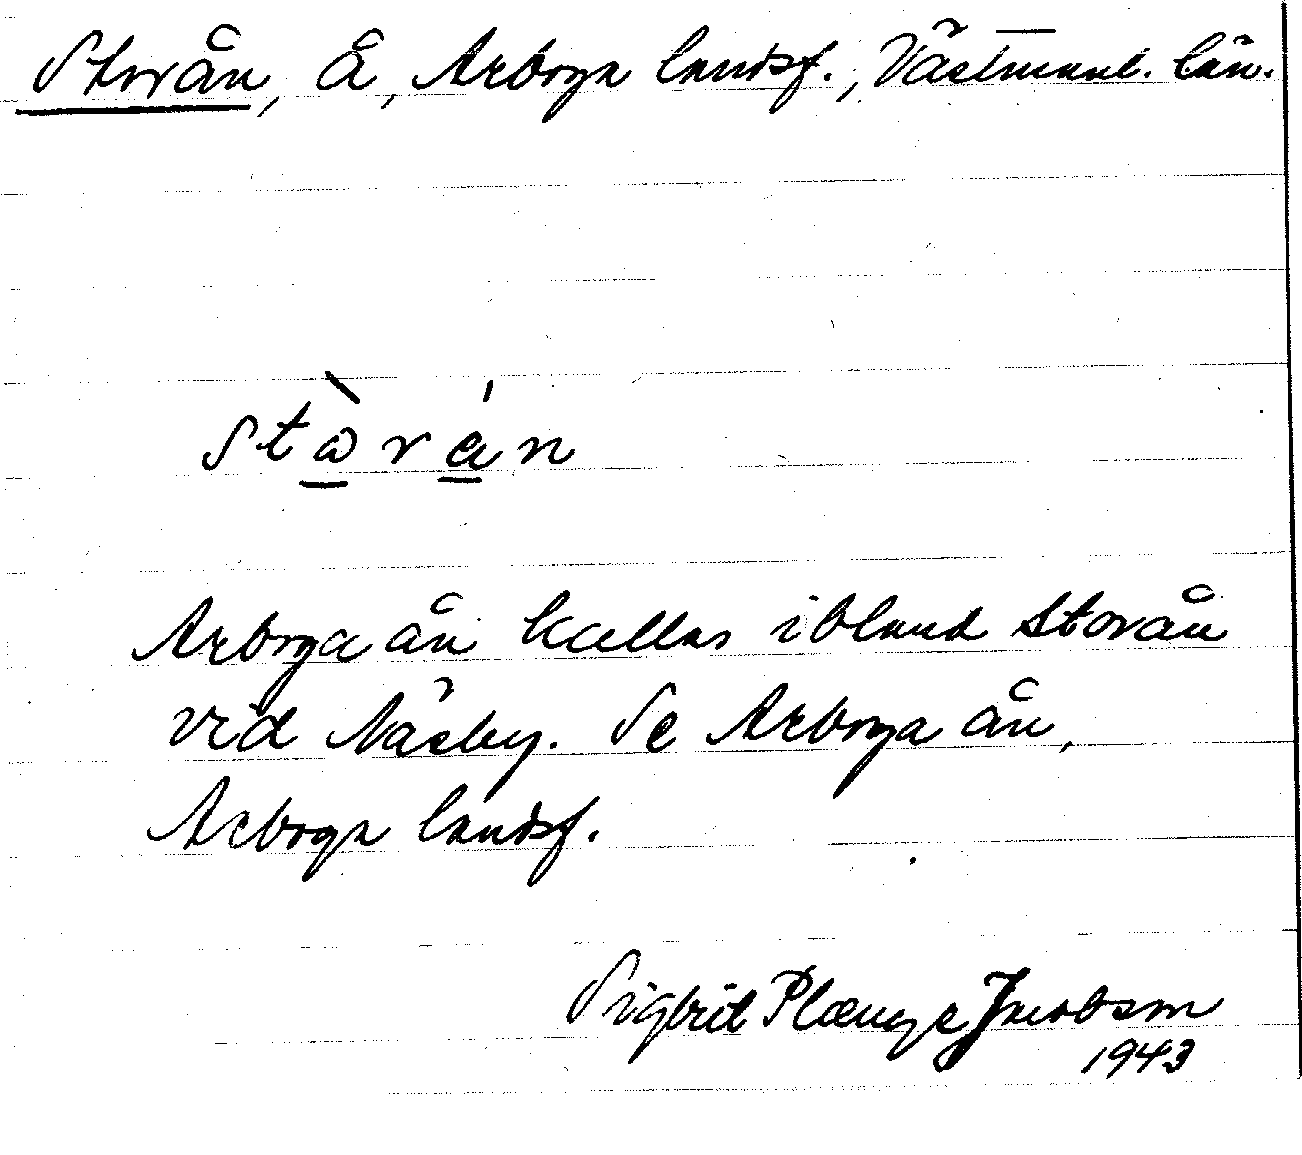 Storån, å, Arboga landsf., Västmanl. län.
stὼ̱rά̱n
Arboga ån kallas ibland Storån
vid Näsby. Se Arboga ån,
Arboga landsf.
Sigbrit Plænge Jacobson
1943